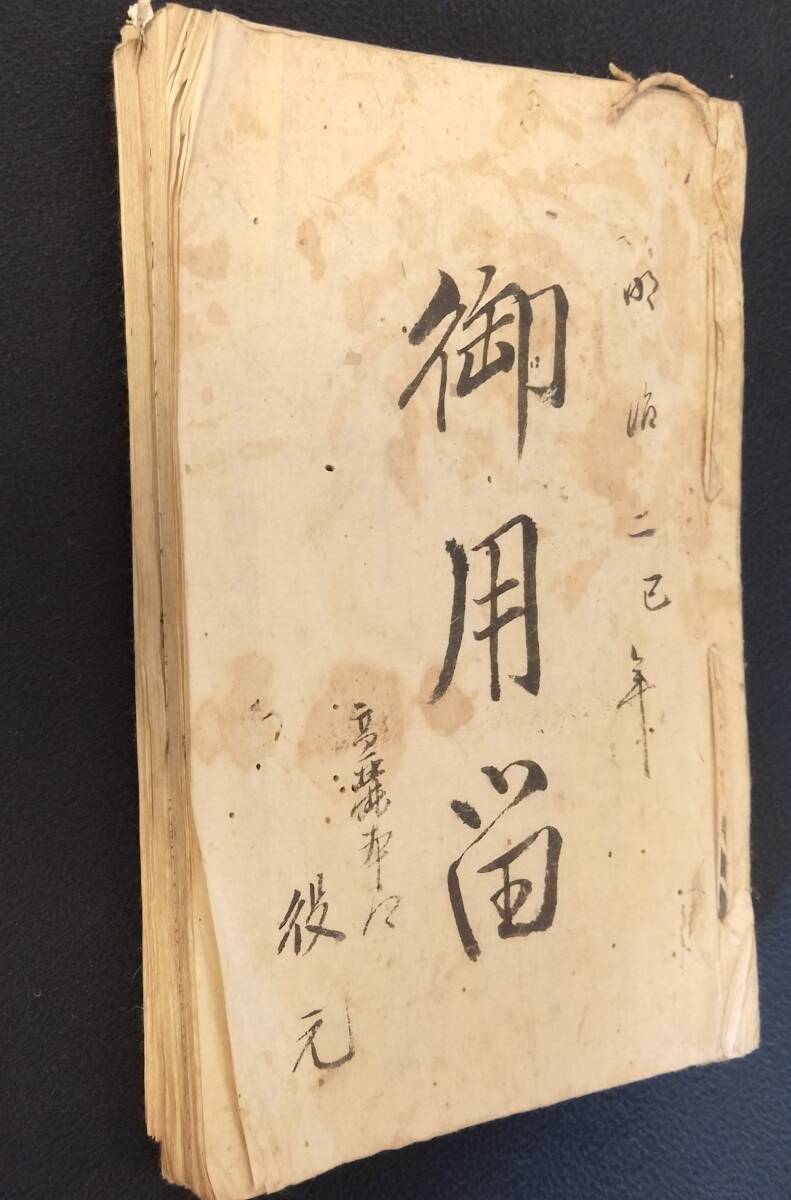 明治二巳年
御用留
高麗本郷
役元